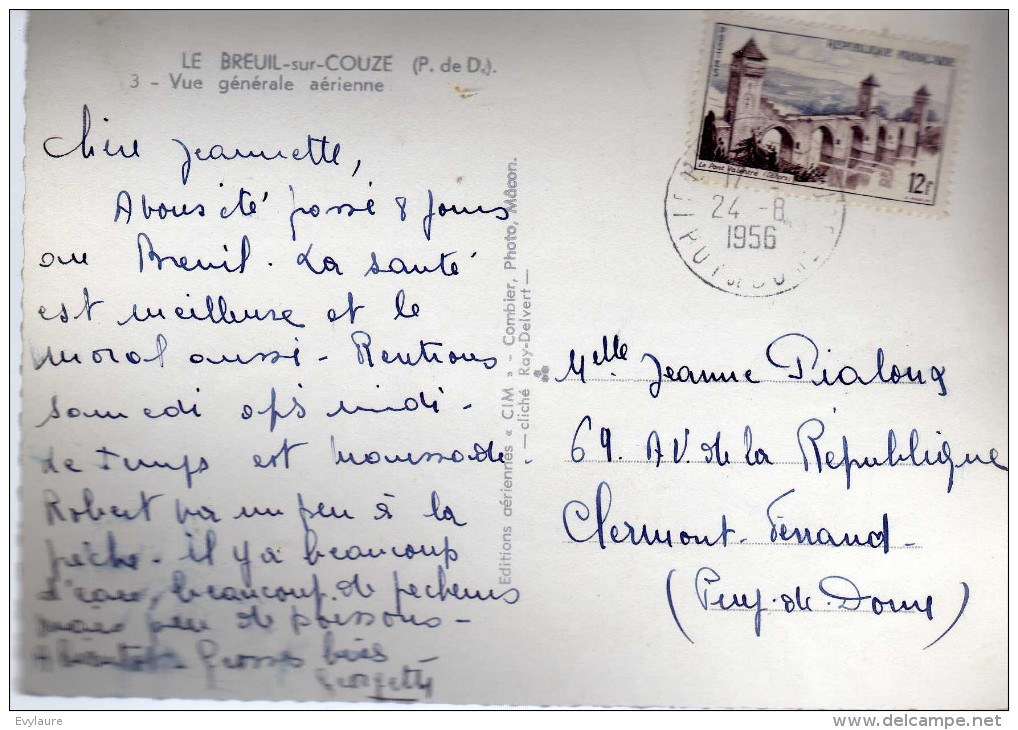 LE BREUIL-sur-COUZE (P. de D.).
3 - Vue générale aérienne
Chère Jeannette,
Avons été passé 8 jours
au Breuil. La santé
est meilleure et le
moral aussi - Rentrons
samedi aps midi -
Le temps est maussade.
Robert va un peu à la
pêche - il y a beaucoup
d'eau, beaucoup de pecheurs
mais peu de poissons -
A Bientôt - Grosses bises
Georgette
Editions aériennes « CIM » - Combier, Photo, Mâcon.
— cliché Ray-Delvert —
POSTES
REPUBLIQUE FRANÇAISE
Le Pont Valentré (Cahors)
12F
24 -8
1956
PUY DE DOME
Melle Jeanne Pialoux
69. AV. de la République
Clermont-Ferrand -
(Puy-de-Dome)
Evylaure
www.delcampe.net